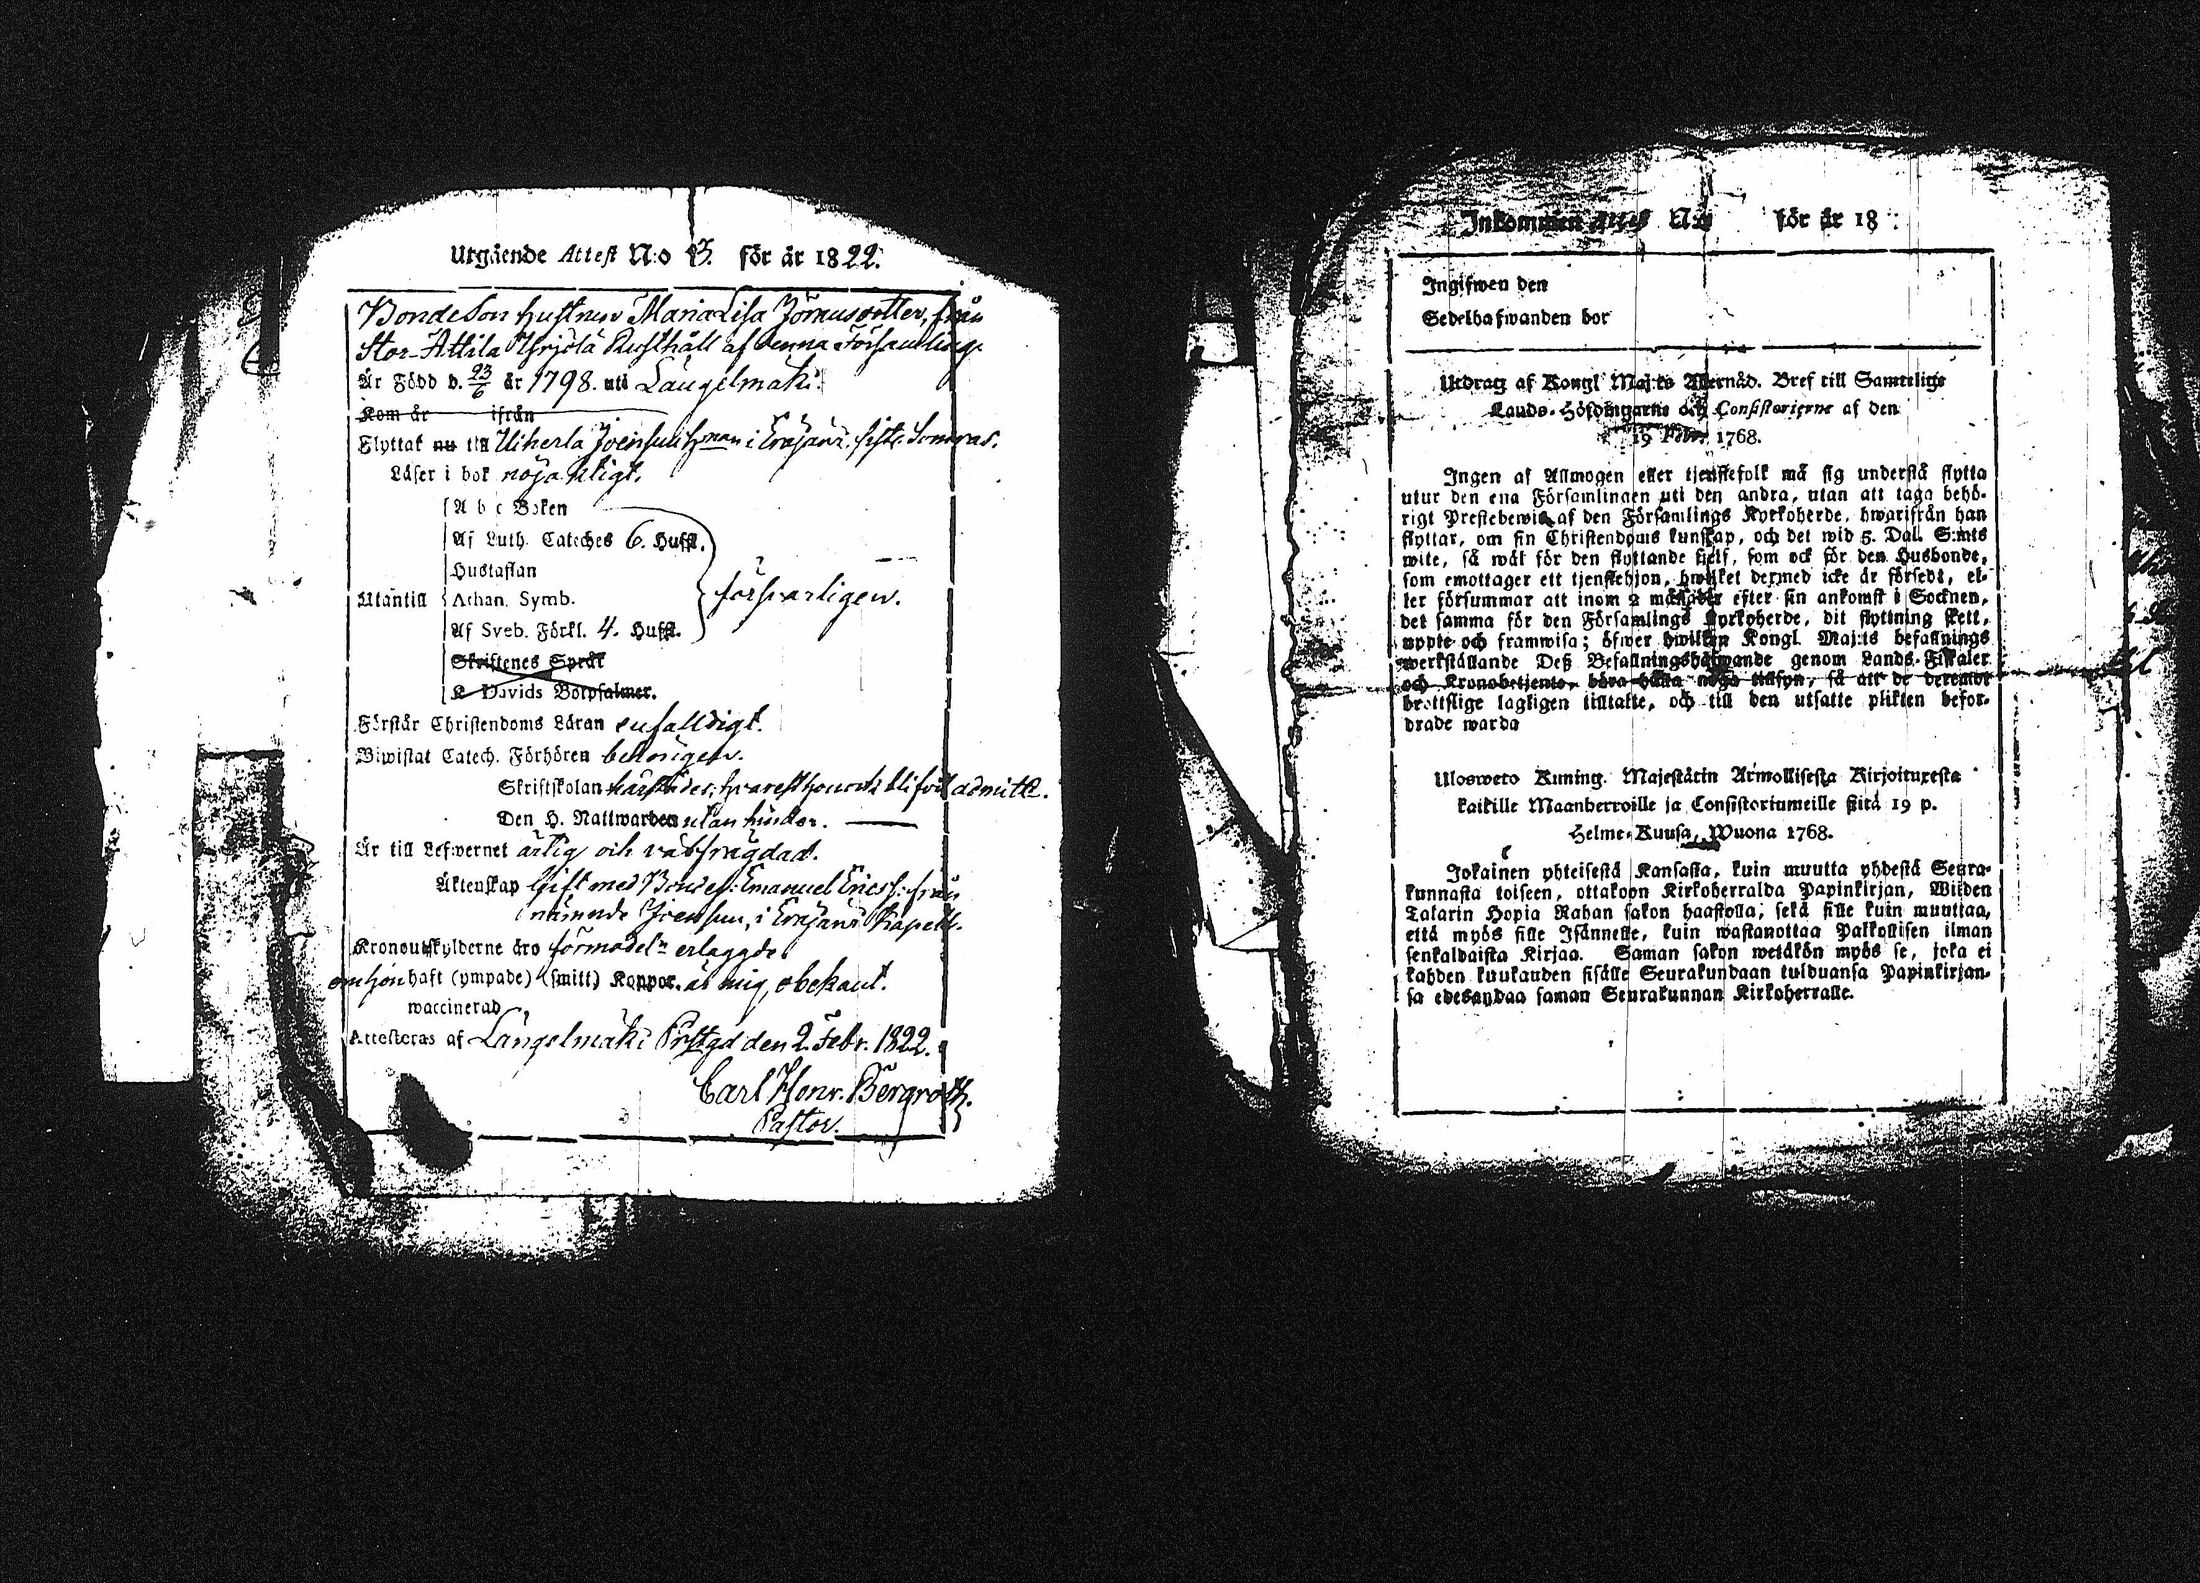 Utgående Attest N:o 3. för år 1822.
Bondeson hustrun Maria Lisa Jöransdotter, från
Stor-Attila Yrjölä Rusthåll af denna Församling.
Är Född d. 23/6 år 1798. uti Längelmäki.
Kom år ifrån
Flyttat nu till Uiherla Joensuu i Eräjärvi, sistl. Sommar.
Läser i bok nöjaktligt.
A b c Boken
Af Luth. Cateches 6. Hufst.
Hustaflan
Utantill Athan. Symb. försvarligen.
Af Sveb. Förkl. 4. Hufst.
Skriftenes Språk
K Davids Botpsalmer.
Förstår Christendoms Läran enfalldigt.
Biwistat Catech. Förhören behörigen.
Skriftskolan härstädes, hvarest hon ock blifvit admitt.
Den H. Nattwarden utan hinder.
Är till Lefwernet ärlig och välfrägdad.
Äktenskap Gift med Bondes: Emanuel Ericss: från
nämnde Joensuu, i Eräjärvi Kapell.
Kronoutskylderne äro förmodel:n erlagde
om hon haft (ympade) (smitt) Koppor. är mig obekant.
waccinerad
Attesteras af Längelmäki Prstgd den 2. Febr. 1822.
Carl Henr. Bergroth.
Pastor.
Inkommen Attest N:o för år 18
Ingifwen den
Sedelhafwanden bor
Utdrag af Kongl Maj:ts Allernåd. Bref till Samtelige
Lands-Höfdingarne och Consistorierne af den
19 Febr. 1768.
Ingen af Allmogen eller tjenstefolk må sig understå flytta
utur den ena Församlingen uti den andra, utan att taga behö-
rigt Prestebewis af den Församlings Kyrkoherde, hwarifrån han
flyttar, om sin Christendoms kunskap, och det wid 5. Dal. S:mts
wite, så wäl för den flyttande sjelf, som ock för den Husbonde,
som emottager ett tjenstehjon, hwilket dermed icke är försedt, el-
ler försummar att inom 2 månader efter sin ankomst i Socknen,
det samma för den Församlings Kyrkoherde, dit flyttning skett,
uppte och framwisa; öfwer hwilken Kongl. Maj:ts befallnings
werkställande Deß Befallningshafwande genom Lands-Fiskaler
och Kronobetjente, böra hålla noga tillsyn, så att de deremot
brottslige lagligen tilltalte, och till den utsatte plikten befor-
drade warda
Ulosweto Kuning. Majestätin Armollisesta Kirjoituxesta
kaikille Maanherroille ja Consistoriumeille siitä 19 p.
Helme-Kuusa, Wuona 1768.
Jokainen yhteisestä Kansasta, kuin muutta yhdestä Seura-
kunnasta toiseen, ottakoon Kirkoherralda Papinkirjan, Wiiden
Talarin Hopia Rahan sakon haastolla, sekä sille kuin muuttaa,
että myös sille Isännelle, kuin wastanottaa Palkollisen ilman
senkaldaista Kirjaa. Saman sakon wetäkön myös se, joka ei
kahden kuukauden sisälle Seurakundaan tulduansa Papinkirjan-
sa edesandaa saman Seurakunnan Kirkoherralle.